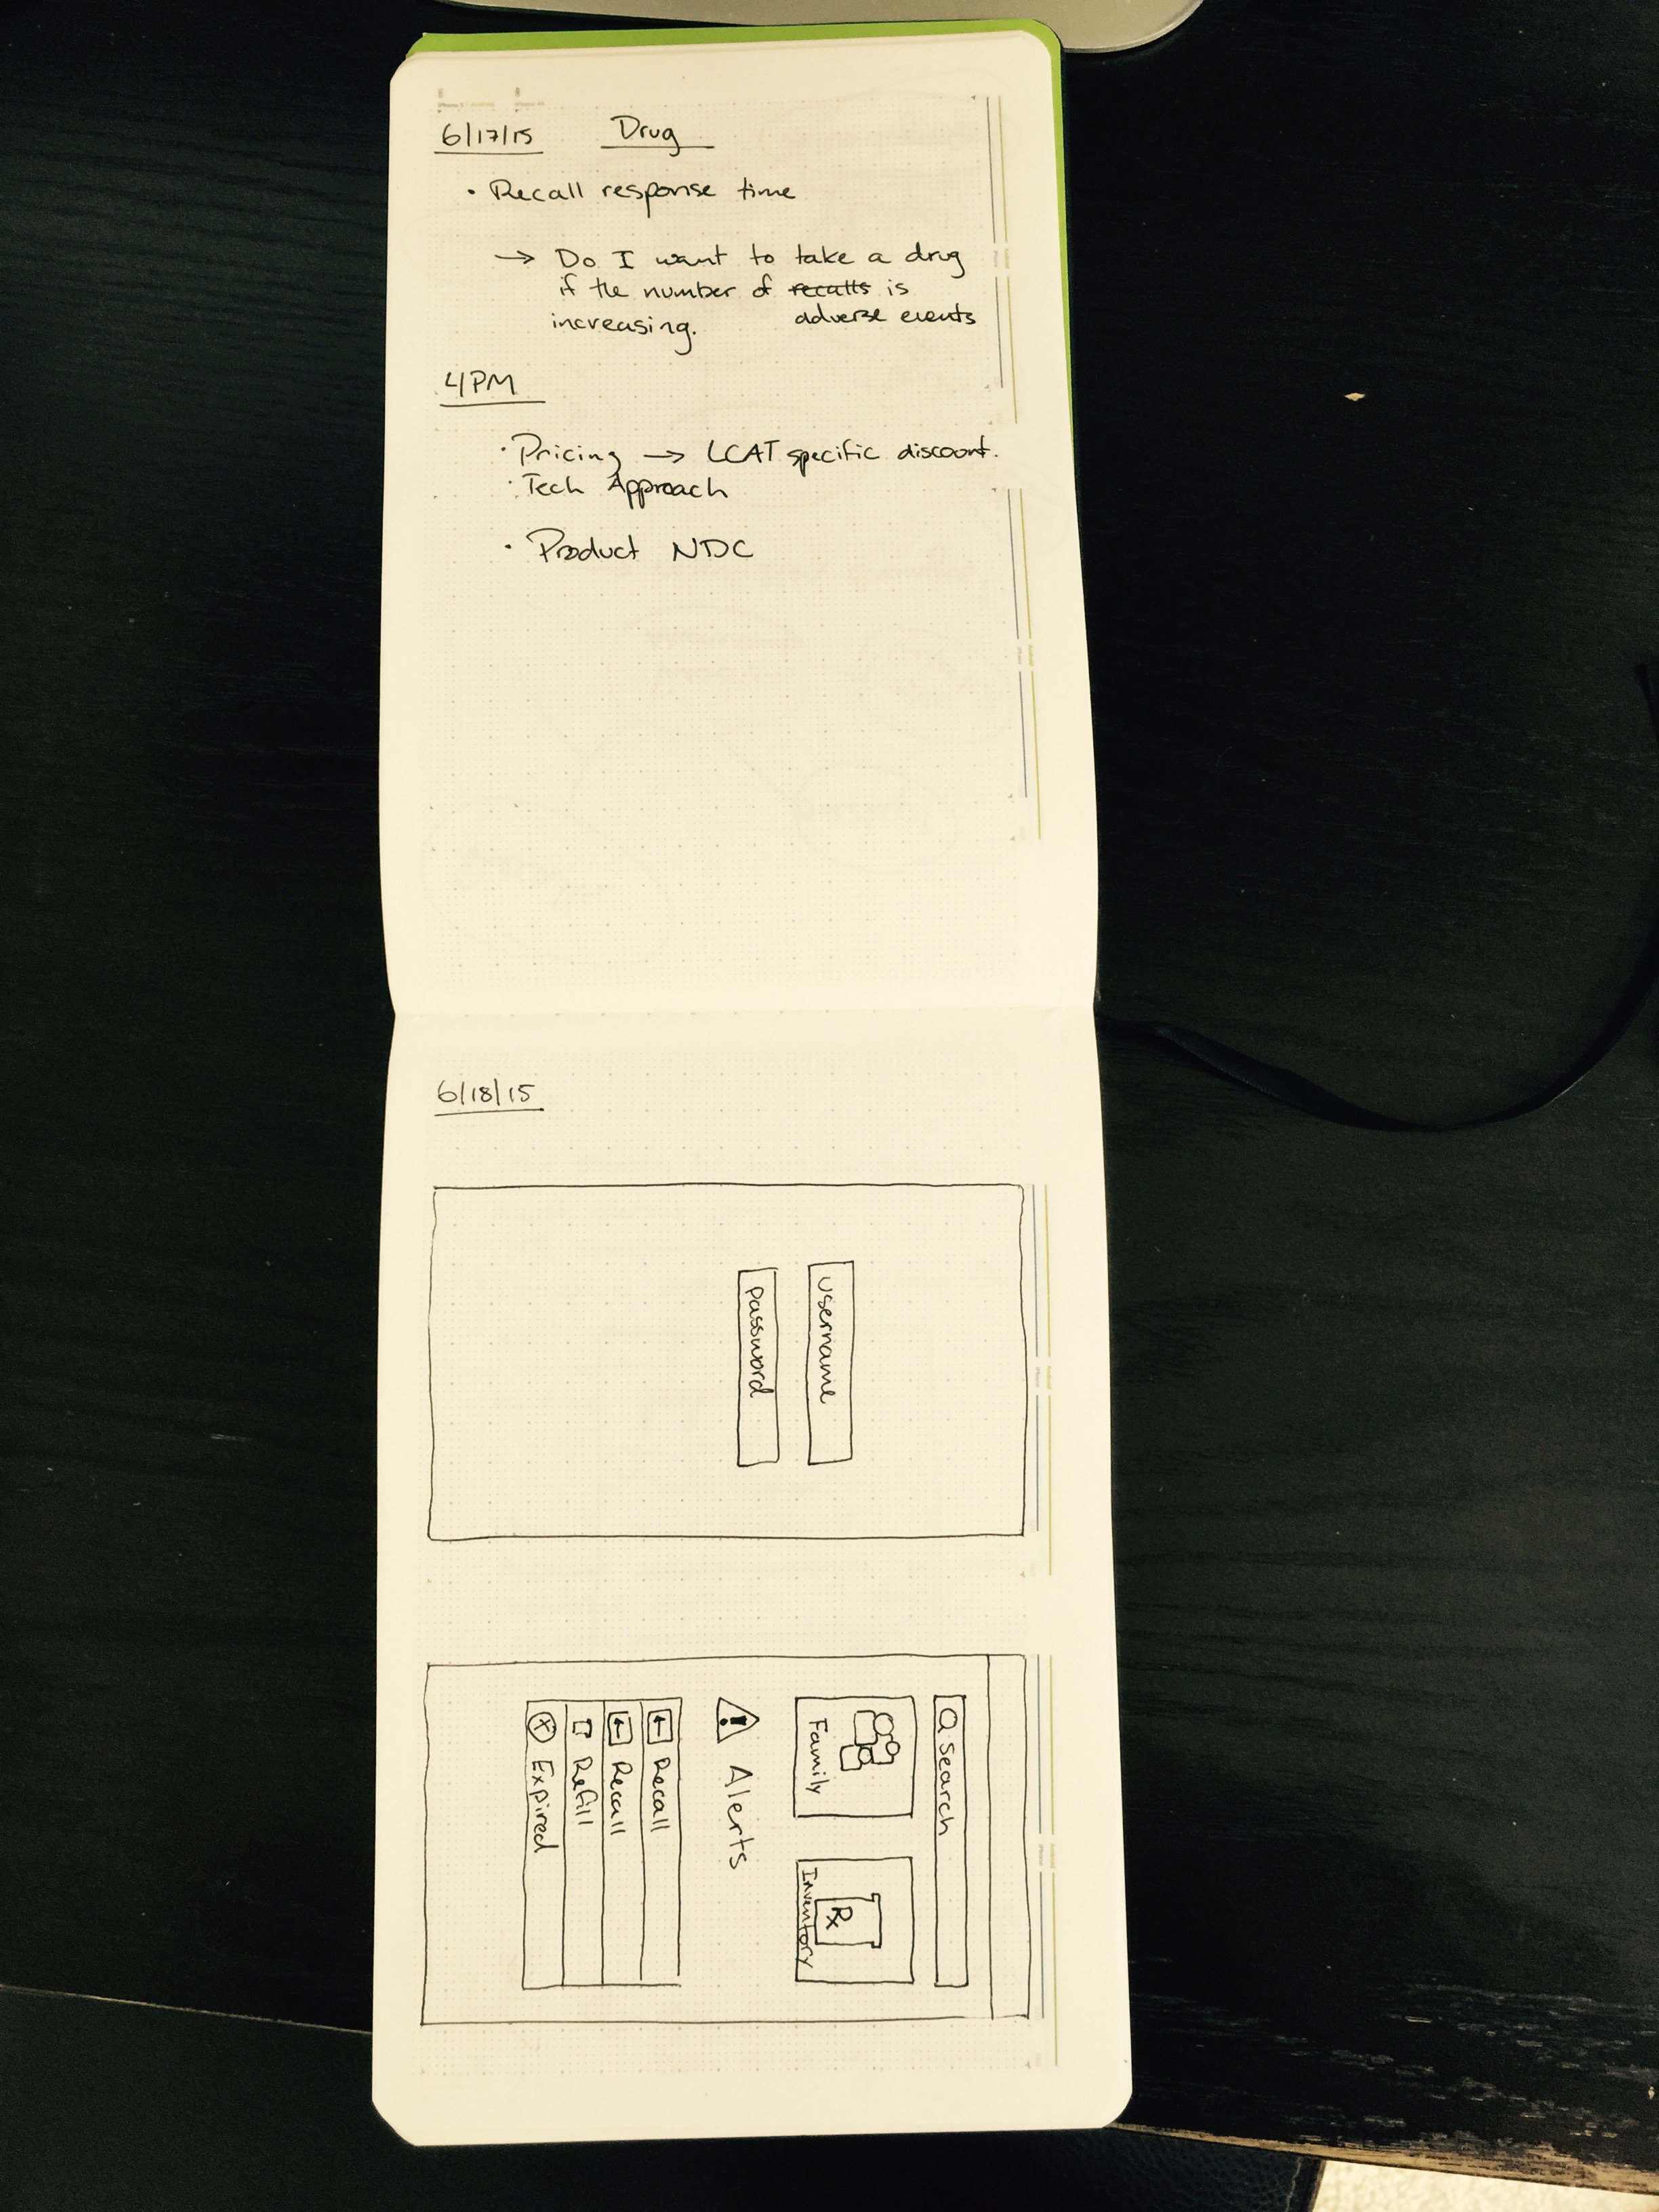 6/17/15 Drug
• Recall response time
→ Do I want to take a drug
if the number of recalls is
increasing. adverse events
4PM
• Pricing → LCAT specific discount.
• Tech Approach
• Product NDC
6/18/15
username
password
Search
Family
Inventory
Rx
Alerts
Recall
Recall
Refill
Expired